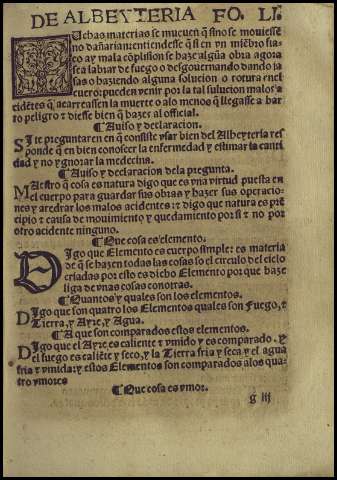 DE ALBEYTERIA FO. LI.
Uchas materias se mueuen q̃ sino se mouiessē
no dañarian: entiendesse q̃ si en vn miẽbro fla-
co ay mala cõplision se haze algũa obra agora
sea labrar de fuego o desgouernando dando la
sas o haziendo alguna solucion o rotura enel
cuero: pueden venir por la tal solucion malos a
cidẽtes q̃ acarreassen la muerte o alo menos q̃ llegasse a har
to peligro ⁊ diesse bien q̃ hazer al official.
¶ Auiso y declaracion.
SI te preguntaren en q̃ consiste vsar bien del Albeyteria res
ponde q̃ en bien conoscer la enfermedad y estimar la canti
dad y no ygnorar la medecina.
¶ Auiso y declaracion dela pregunta.
MAestro q̃ cosa es natura digo que es vna virtud puesta en
el cuerpo para guardar sus obras y hazer sus operacio-
nes y arredrar los malos acidentes: ⁊ digo que natura es prĩ
cipio ⁊ causa de mouimiento y quedamiento por si ⁊ no por
otro acidente ninguno.
¶ Que cosa es elemento.
DIgo que Elemento es cuerpo simple: es materia
de q̃ se hazen todas las cosas so el circulo del cielo
criadas por esto es dicho Elemento por que haze
liga de vnas cosas con otras.
¶ Quantos y quales son los elementos.
DIgo que son quatro los Elementos quales son Fuego, ⁊
Tierra, y Ayre, y Agua.
¶ A que son comparados estos elementos.
DIgo que el Ayre es caliente ⁊ vmido y es comparado. y
el fuego es caliẽte y seco, y la Tierra fria y seca y el agua
fria y vmida: y estos Elementos son comparados a los qua-
tro vmores
¶ Que cosa es vmor.
g iij